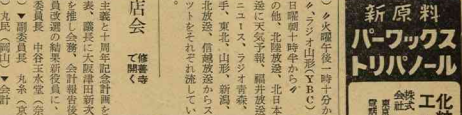 新原料
パーワックス
トリパノール
化粧
工
株式
会社
東京
電話
〃火曜午後一時十分か
〃、ラジオ山形(YBC)
日曜朝十時半から〃
の他、北陸放送、北日本
送に天気予報、福井放送
ニュース、ラジオ青森、
手、東北、山形、新潟、
北放送、信越放送からス
ツトをそれぞれ流してい
店会
修善寺
で開く
主義と十周年記念計画を
表、議長に大阪津田新次
を推し会務、会計報告後
員改選の結果新役員に、
委員長 中谷玉水堂(奈
▼副委員長 丸条(京
丸民(岡山)▼会計